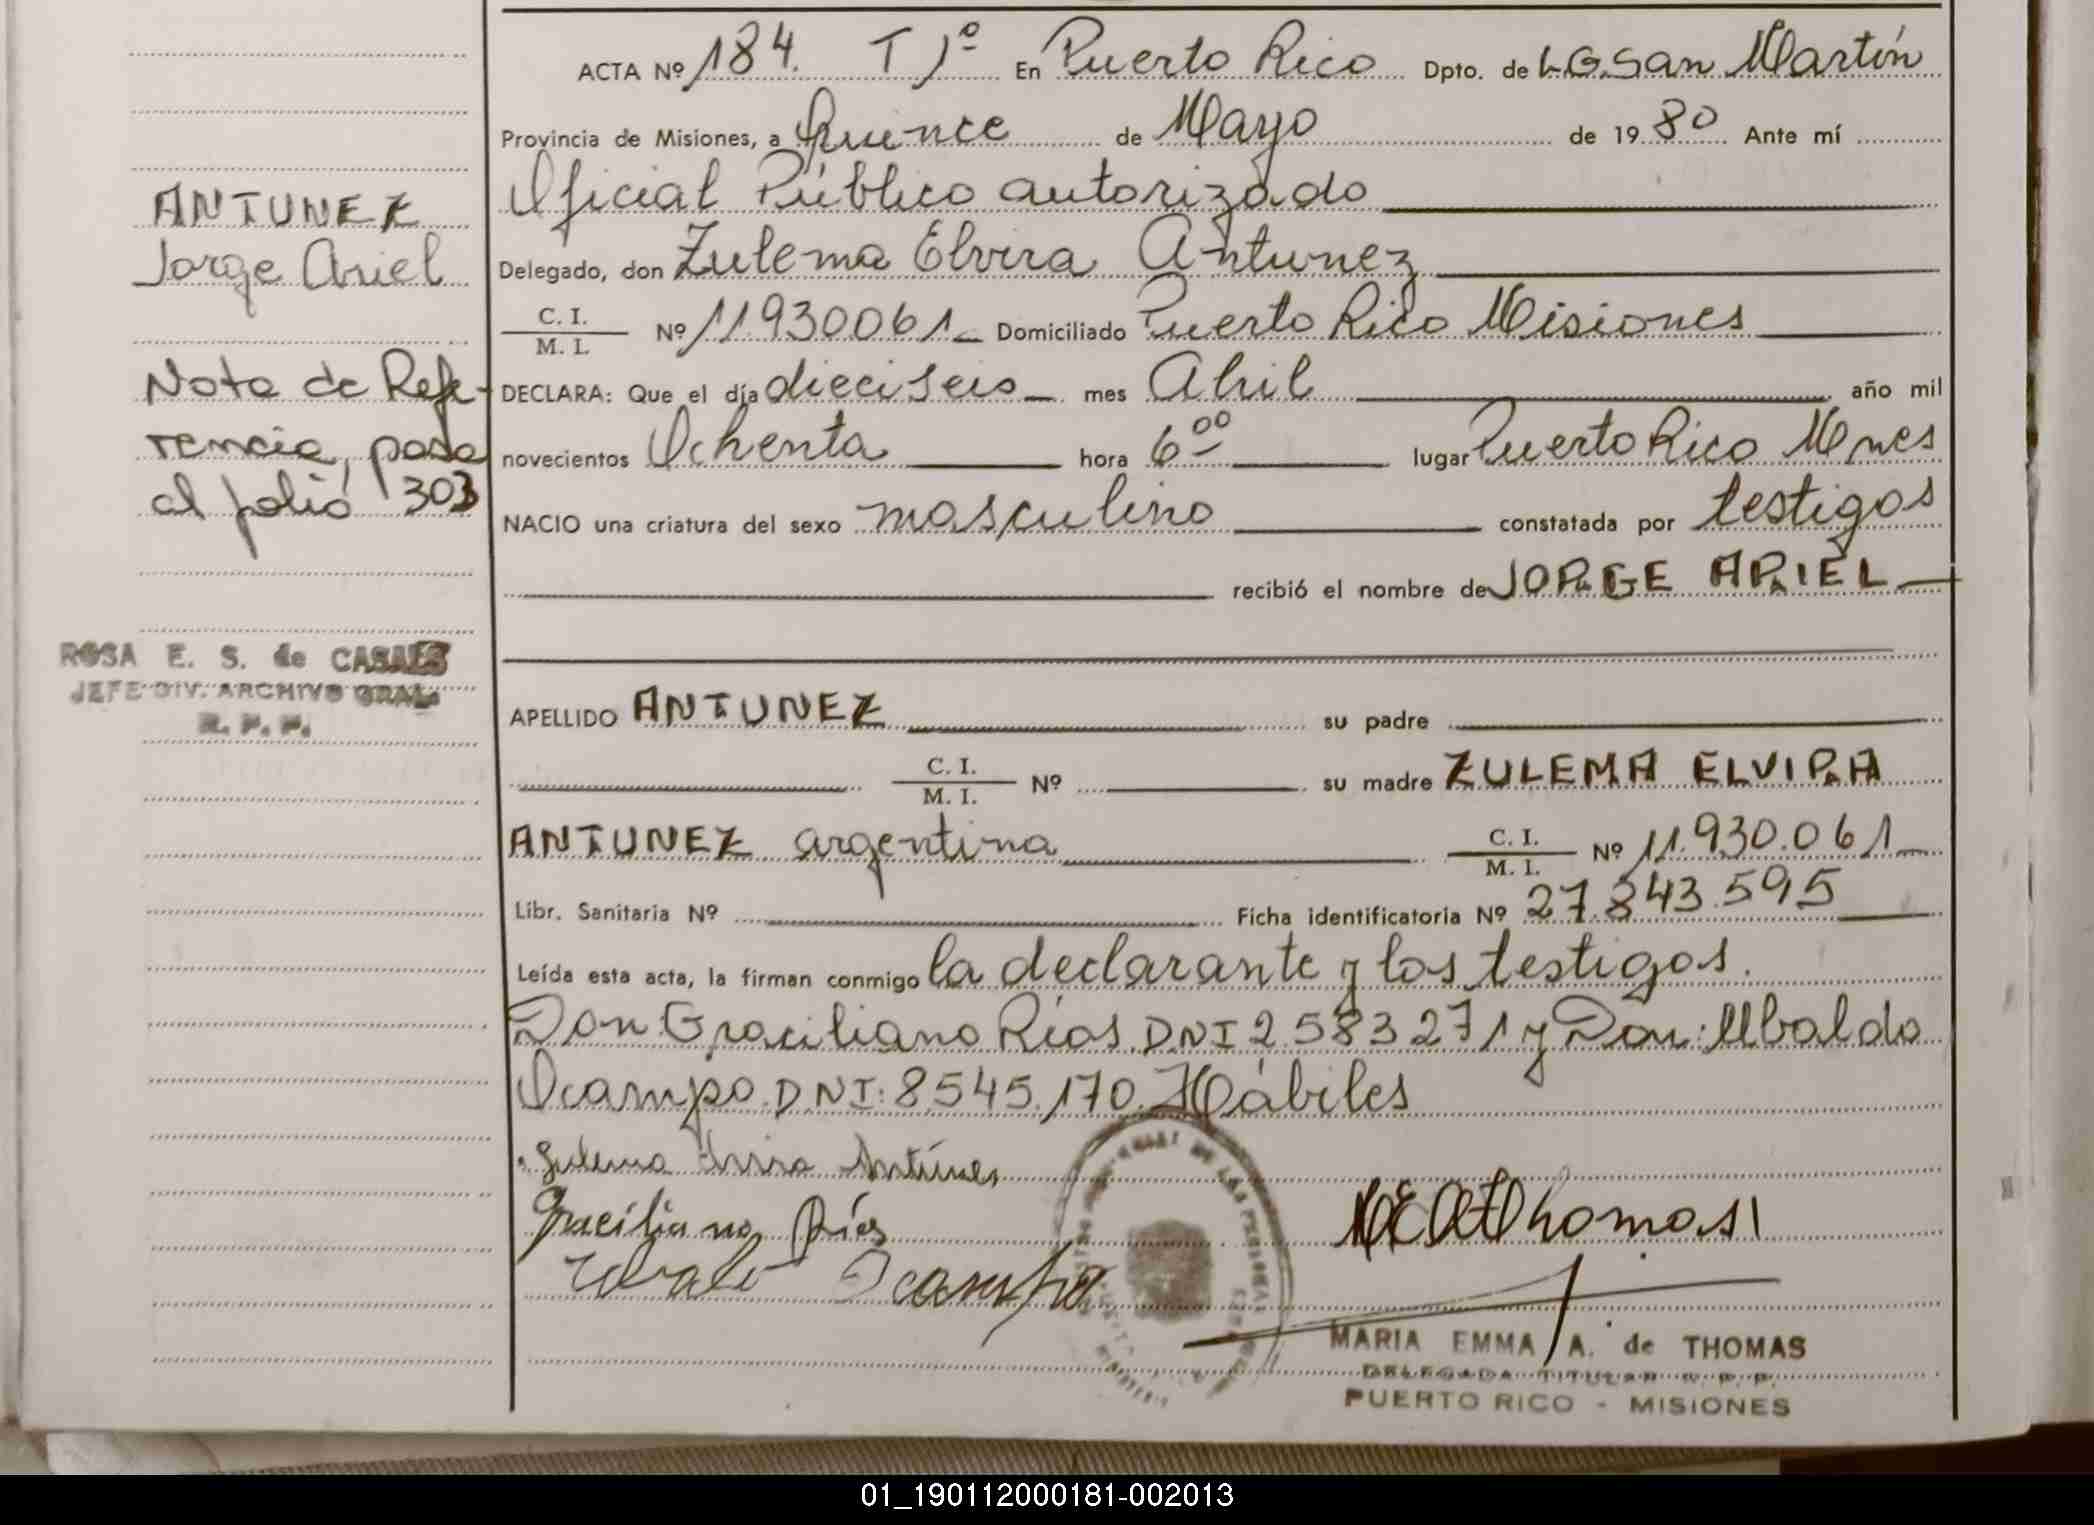 ACTA Nº 184. T 1º En Puerto Rico Dpto. de L.G.San Martín
Provincia de Misiones, a Quince de Mayo de 1980 Ante mí
Oficial Público autorizado
Delegado, don Zulema Elvira Antunez
C. I. / M. I. Nº 11930061 Domiciliado Puerto Rico Misiones
DECLARA: Que el día dieciseis mes Abril año mil
novecientos Ochenta hora 6⁰⁰ lugar Puerto Rico Mnes
NACIO una criatura del sexo masculino constatada por testigos
recibió el nombre de JORGE ARIEL
APELLIDO ANTUNEZ su padre
C. I. / M. I. Nº su madre ZULEMA ELVIRA
ANTUNEZ argentina C. I. / M. I. Nº 11.930.061
Libr. Sanitaria Nº Ficha identificatoria Nº 27.843.595
Leída esta acta, la firman conmigo la declarante y los testigos.
Don: Graciliano Ríos. D.N.I 2.583.271 y Don: Ubaldo
Ocampo. D.N.I: 8.545.170. Hábiles
Zulema Antúnes
Graciliano Ríos
Ocampo
MARIA EMMA A. de THOMAS
DELEGADA TITULAR R. P. P.
PUERTO RICO - MISIONES
ANTUNEZ
Jorge Ariel
Nota de Refe-
rencia, pasa
al folio 303
ROSA E. S. de CASALS
JEFE DIV. ARCHIVO GRAL.
R. P. P.
01_190112000181-002013